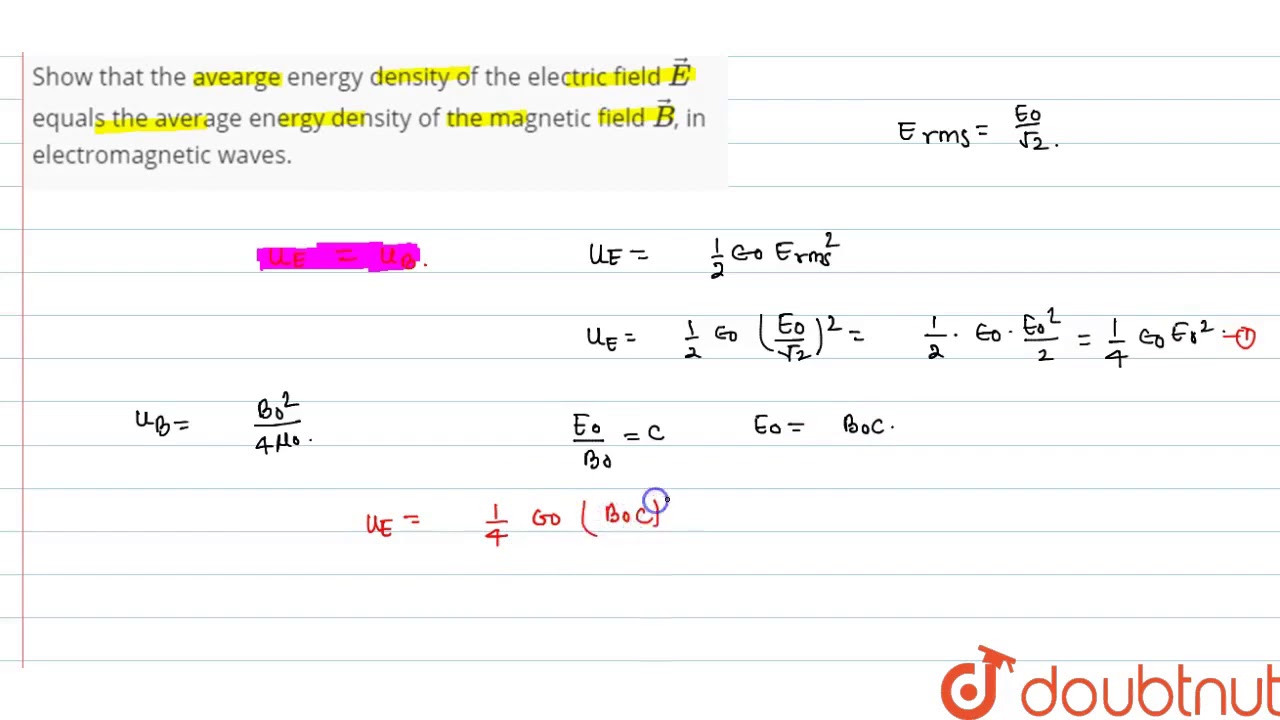 Show that the avearge energy density of the electric field $\vec{E}$
equals the average energy density of the magnetic field $\vec{B}$, in
electromagnetic waves.
E rms = E₀/√2.
u_E = u_B.
u_E = 1/2 ϵ₀ E rms²
u_E = 1/2 ϵ₀ (E₀/√2)² = 1/2 · ϵ₀ · E₀²/2 = 1/4 ϵ₀ E₀² · —①
u_B = B₀²/4μ₀.
E₀/B₀ = c
E₀ = B₀c.
u_E = 1/4 ϵ₀ (B₀c)
doubtnut